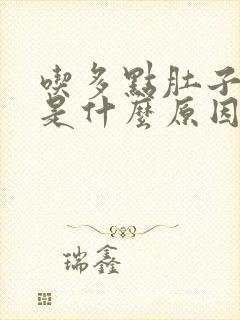 喫多點肚子
是什麼原因
瑞鑫